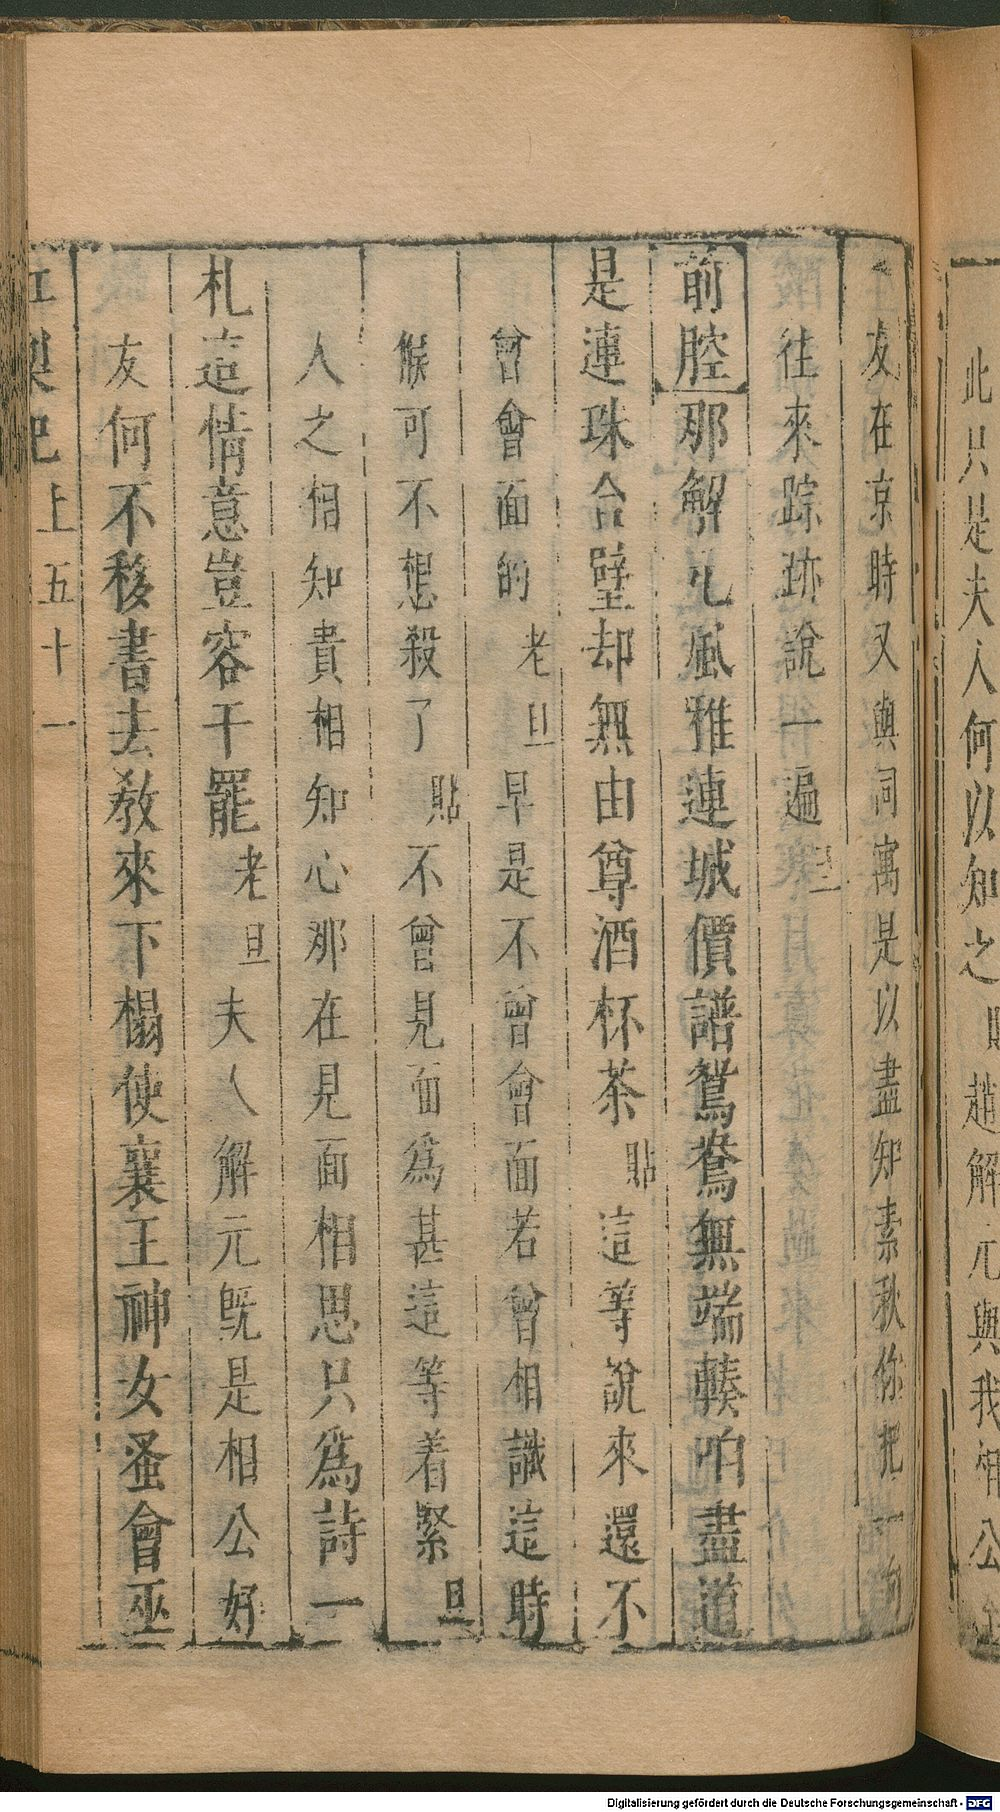 此只是夫人何以知之貼趙解元與我相公
友在京時又與詞寓是以盡知素秋你把一向
往來踪跡說一遍旦
前腔那解元風雅連城價譜鴛鴦無端輳咱盡道
是連珠合璧却無由尊酒杯茶貼這等說來還不
曾會面的老旦早是不曾會面若曾相識這時
候可不想殺了貼不曾見面爲甚這等着緊旦
人之相知貴相知心那在見面相思只爲詩一
札這情意豈容干罷老旦夫人解元旣是相公好
友何不移書去教來下榻使襄王神女蚤會巫
紅梨記上五十一
Digitalisierung gefördert durch die Deutsche Forschungsgemeinschaft - DFG